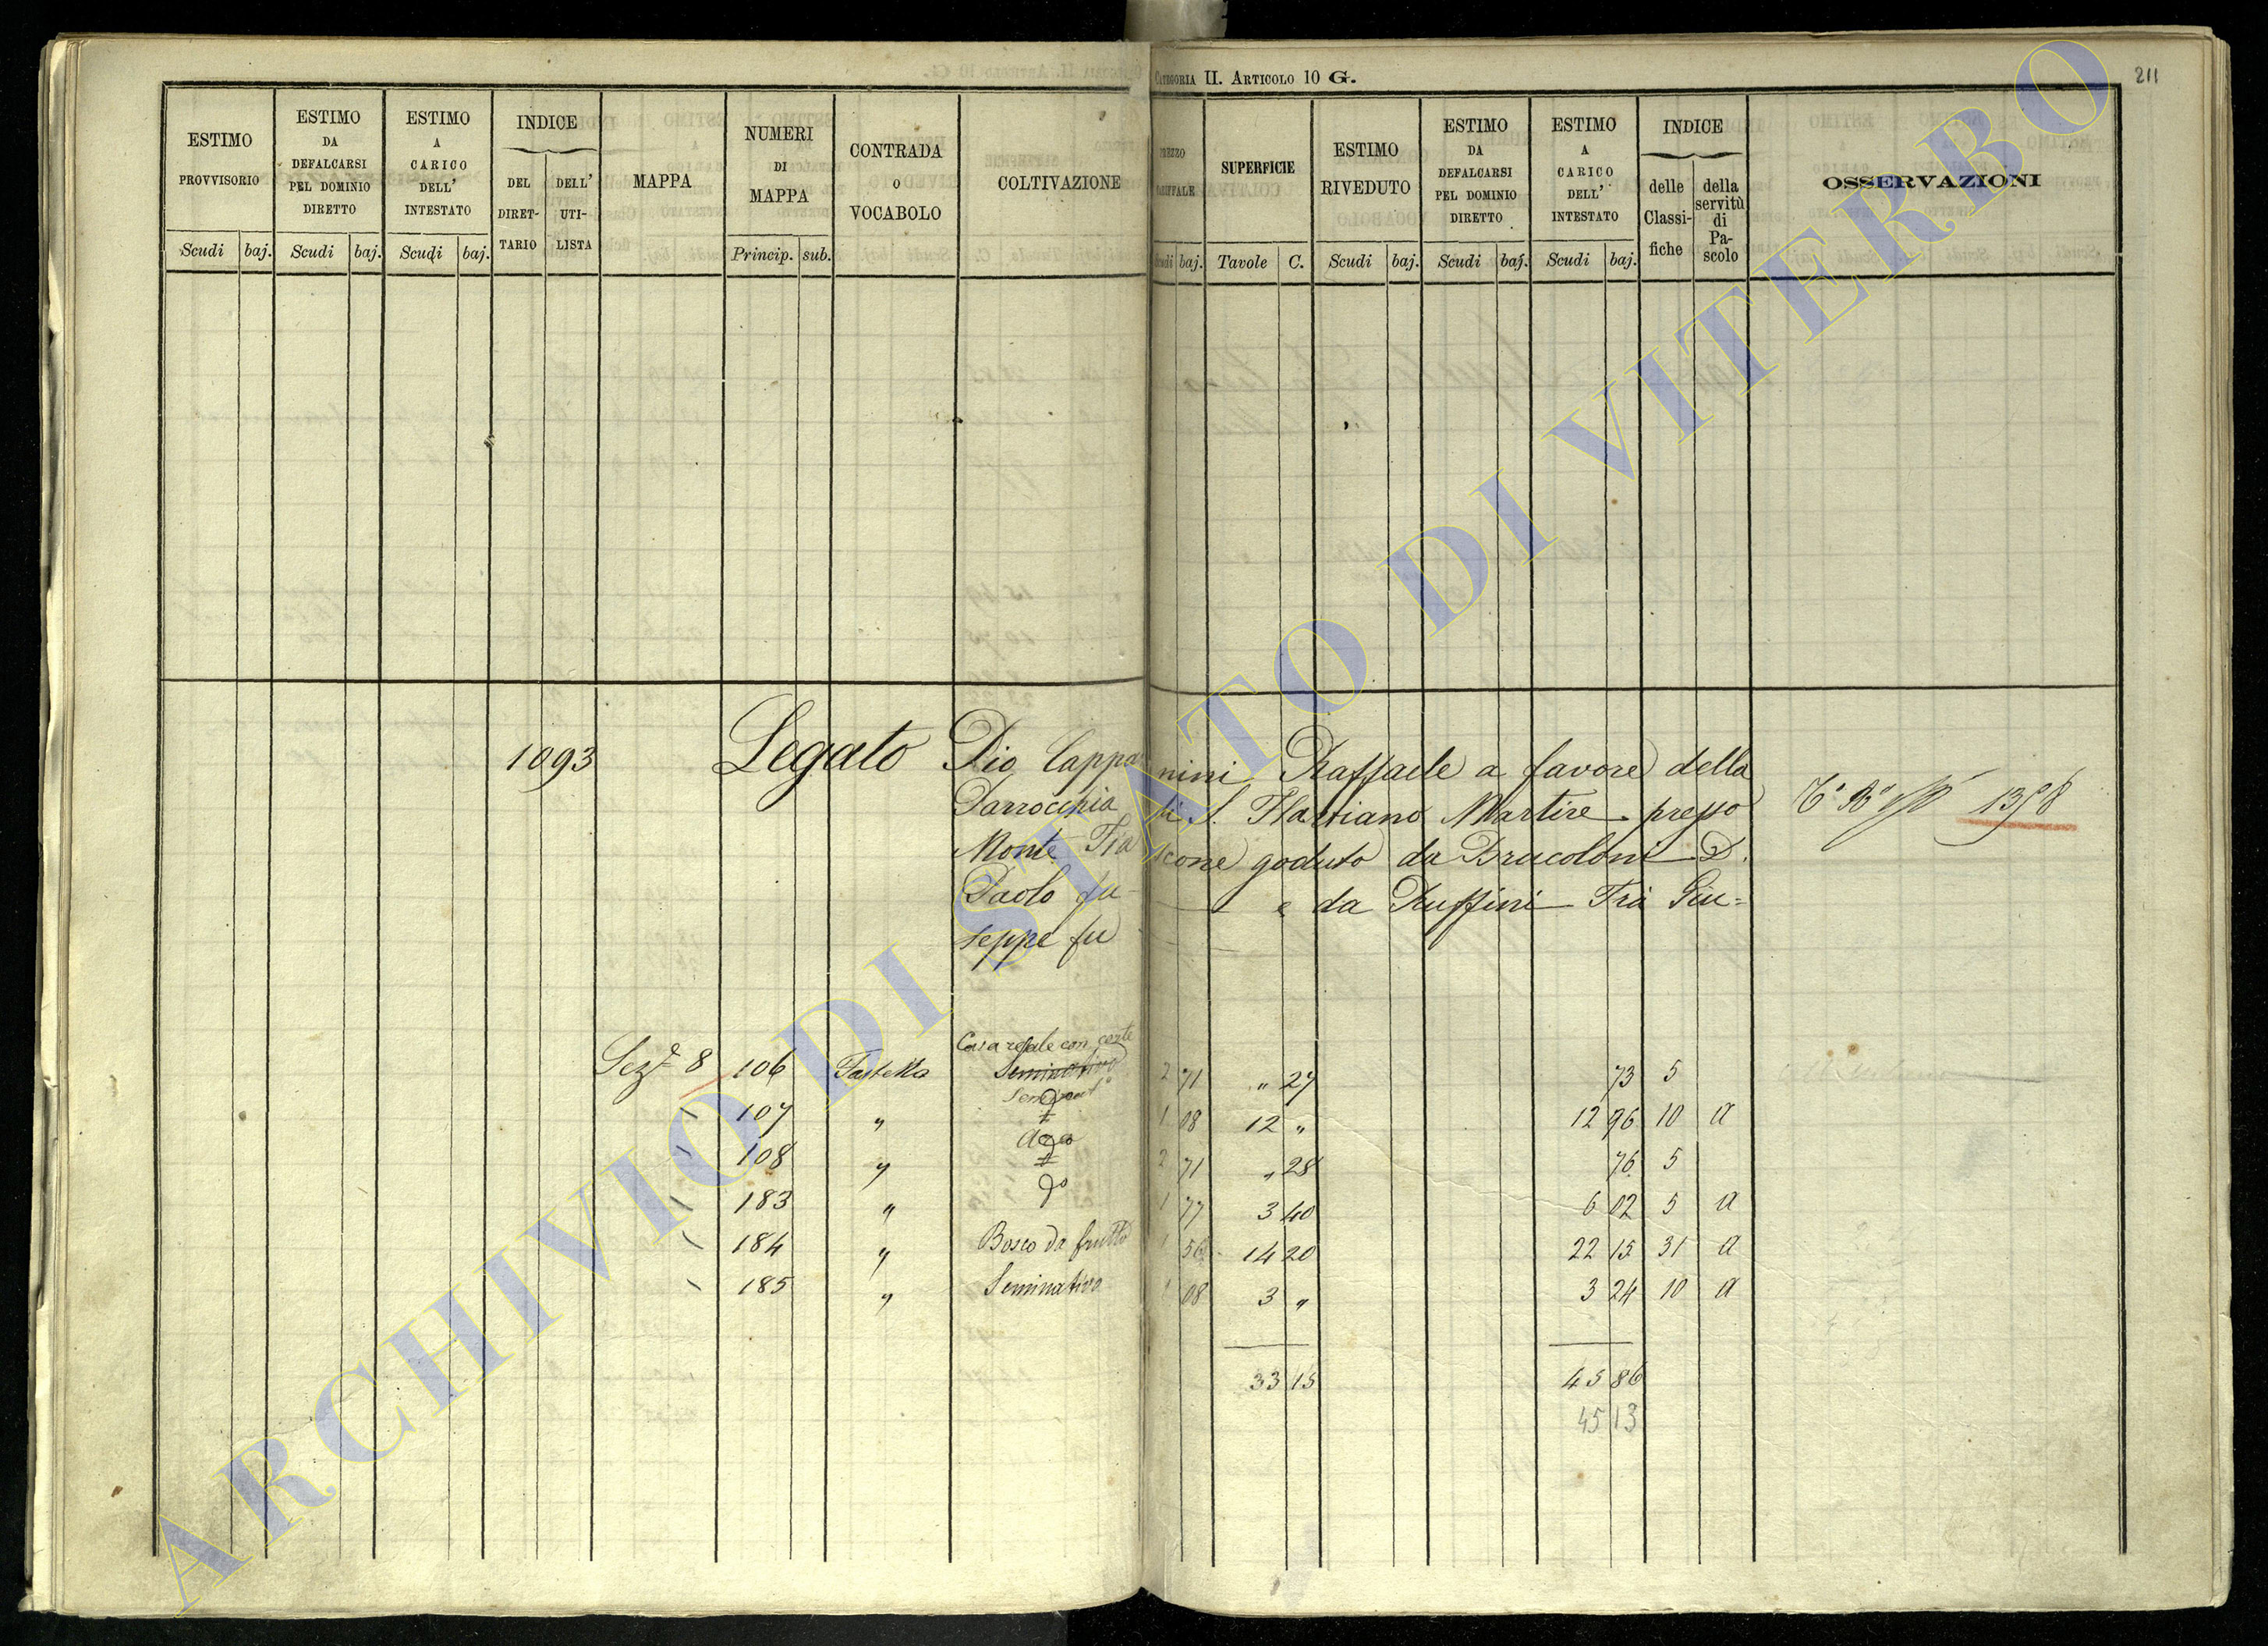 CATEGORIA II. ARTICOLO 10 G.
211
ESTIMO PROVVISORIO
ESTIMO DA DEFALCARSI PEL DOMINIO DIRETTO
ESTIMO A CARICO DELL' INTESTATO
INDICE
DEL DIRET-TARIO
DELL' UTI-LISTA
MAPPA
NUMERI DI MAPPA
CONTRADA O VOCABOLO
COLTIVAZIONE
SUPERFICIE
ESTIMO RIVEDUTO
ESTIMO DA DEFALCARSI PEL DOMINIO DIRETTO
ESTIMO A CARICO DELL' INTESTATO
INDICE
delle Classi-fiche
della servitù di Pa-scolo
OSSERVAZIONI
Scudi baj. Scudi baj. Scudi baj. Princip. sub. baj. Tavole C. Scudi baj. Scudi baj. Scudi baj.
1093 Legato Pio Cappannini Raffaele a favore della
Parrocchia di S. Flaviano Martire presso 1358
Monte Fiascone goduto da Brucoloni D.
Paolo fu e da Ruffini Frà Giu=
seppe fu
Casa rurale con corte
Sez.e 8 106 Fastella Seminativo 2 71 " 27 73 5
107 " 1 08 12 " 12 96 10 a
108 " 2 71 " 28 76 5
183 " do 1 77 3 40 6 02 5 a
184 " Bosco da frutto 1 56 14 20 22 15 31 a
185 " Seminativo 1 08 3 " 3 24 10 a
33 15 45 86
45 13
ARCHIVIO DI STATO DI VITERBO